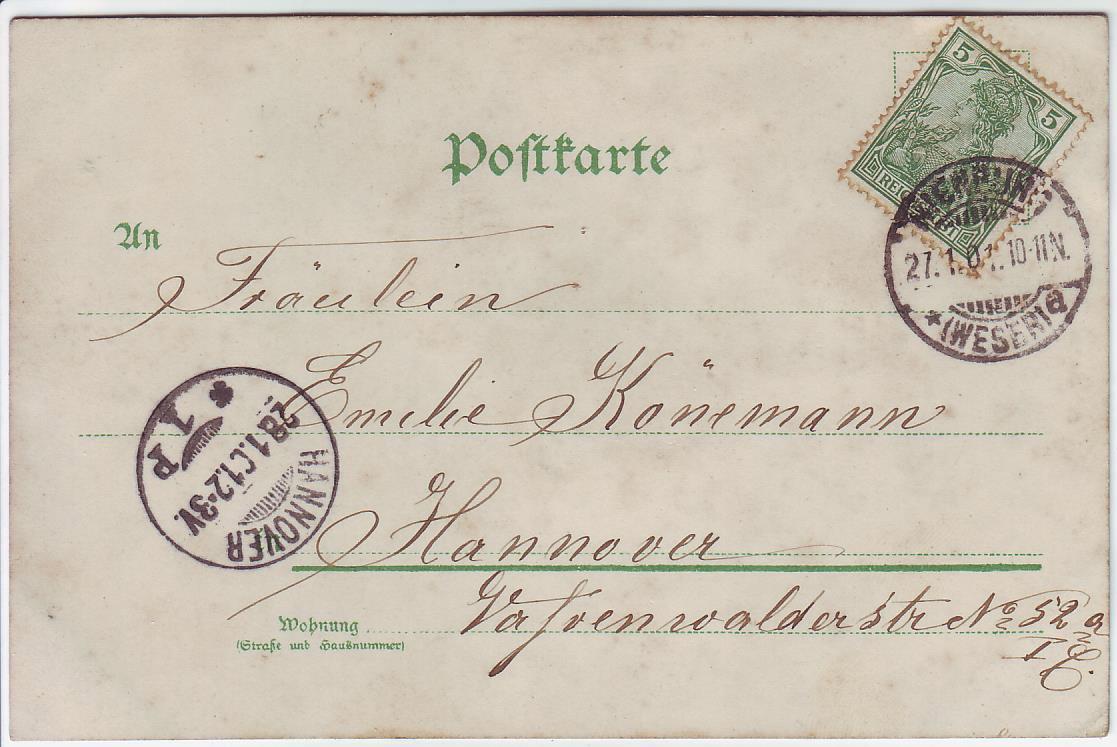 5 5
REICH
Postkarte
NIENBURG
27.1.01. 10-11N.
*(WESER) a
An
Fräulein
Emilie Könemann
HANNOVER
28.1.01.2-3V.
* 1 P
Hannover
Wohnung
(Straße und Hausnummer)
Vahrenwalderstr No 52 a
I C.